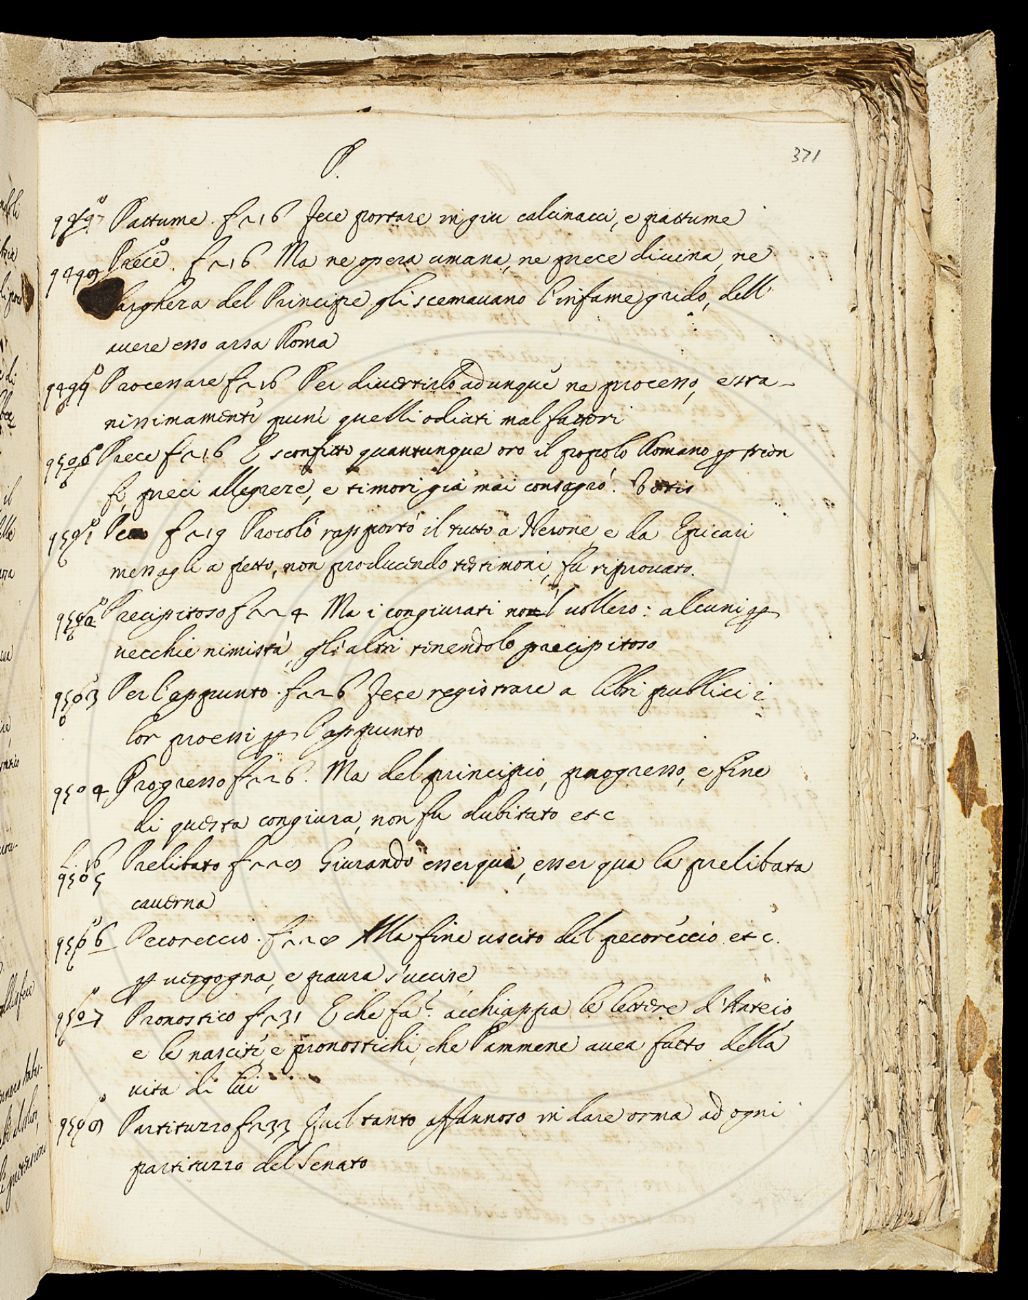 P.
371
9497 Pattume. f 216 Fece portare in giu calcinacci, e pattume
9498 Prece. f 216 Ma ne opera umana, ne prece divina, ne
larghera del Principe gli scemavano l'infame grido, dell'
avere esso arsa Roma
9499 Processare f 216 Per divertirlo adunque ne processò, e stra-
nissimamente punì quelli odiati malfattori
9500 Prece f 216 E sconfitto quantunque oro il popolo Romano
fè, preci allegrezze, e timori già mai consagrò.
9501 f 219 Procolo rapportò il tutto a Nerone e da Epicari
messagli a petto, non producendo testimoni, fu riprovato.
9502 Precipitoso f 224 Ma i congiurati vollero: alcuni p
vecchie nimistà, gli altri tenendolo precipitoso
9503 Per l'appunto. f 226 Fece registrare a libri pubblici i
lor processi p l'appunto
9504 Progresso f 226. Ma del principio, progresso, e fine
di questa congiura, non fu dubitato etc
L. 16
9505 Prelibato f 228 Giurando esser quà, esser qua la prelibata
caverna
9506 Pecoreccio. f 228 Alla fine uscito del pecoreccio etc.
p vergogna, e paura s'uccise
9507 Pronostico f 231 E che fa? acchiappa le lettere d'Anteio
e le nascite, e pronostichi, che Pammene avea fatto della
vita di lui
9508 Partituzzo f 233 Quel tanto affannoso in dare orma ad ogni
partituzzo del Senato